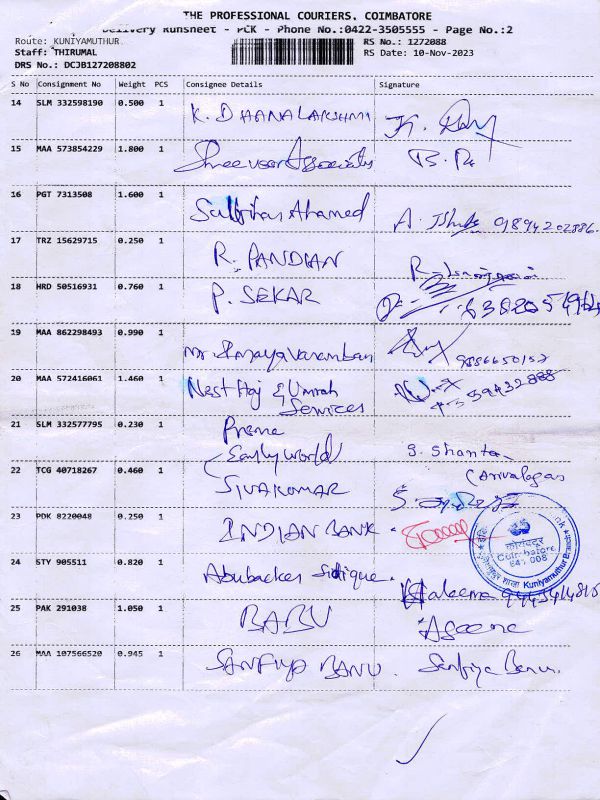 THE PROFESSIONAL COURIERS, COIMBATORE
Delivery Runsheet - PCK - Phone No.:0422-3505555 - Page No.:2
Route: KUNIYAMUTHUR
Staff: THIRUMAL
DRS No.: DCJB127208802
RS No.: 1272088
RS Date: 10-Nov-2023
S No Consignment No Weight PCS Consignee Details Signature
14 SLM 332598190 0.500 1 K. DHANALAKSHMI K.
15 MAA 573854229 1.800 1 Associates
16 PGT 7313508 1.600 1 Ahamed A. 9894202886.
17 TRZ 15629715 0.250 1 R. PANDIAN
18 HRD 50516931 0.760 1 P. SEKAR
19 MAA 862298493 0.990 1 Mr. 9886650152
20 MAA 572416061 1.460 1 Nest Haj & Umrah
Services
21 SLM 332577795 0.230 1 Prene
(Early world S. Shanta
22 TCG 40718267 0.460 1 SIVAKUMAR
23 PDK 8220048 0.250 1 INDIAN BANK.
कोयंबटूर
Coimbatore
641 008
Kuniyamuthur Branch
24 STY 905511 0.820 1 Abubacker Sidique. Haleema
25 PAK 291038 1.050 1 BABU Aseena
26 MAA 107566520 0.945 1 SANFIYA BANU. Sanfiya Banu.